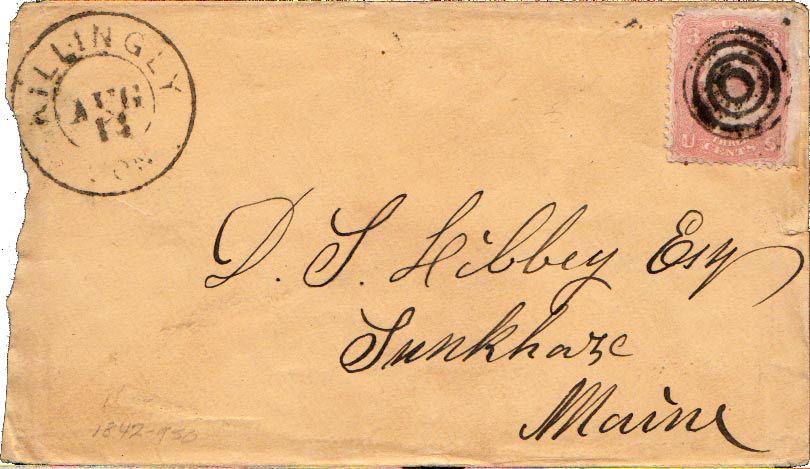 KILLINGLY
AUG
CON
3 3
U THREE CENTS S
D. S. Libbey Esq
Sunkhaze
Maine
1842-950